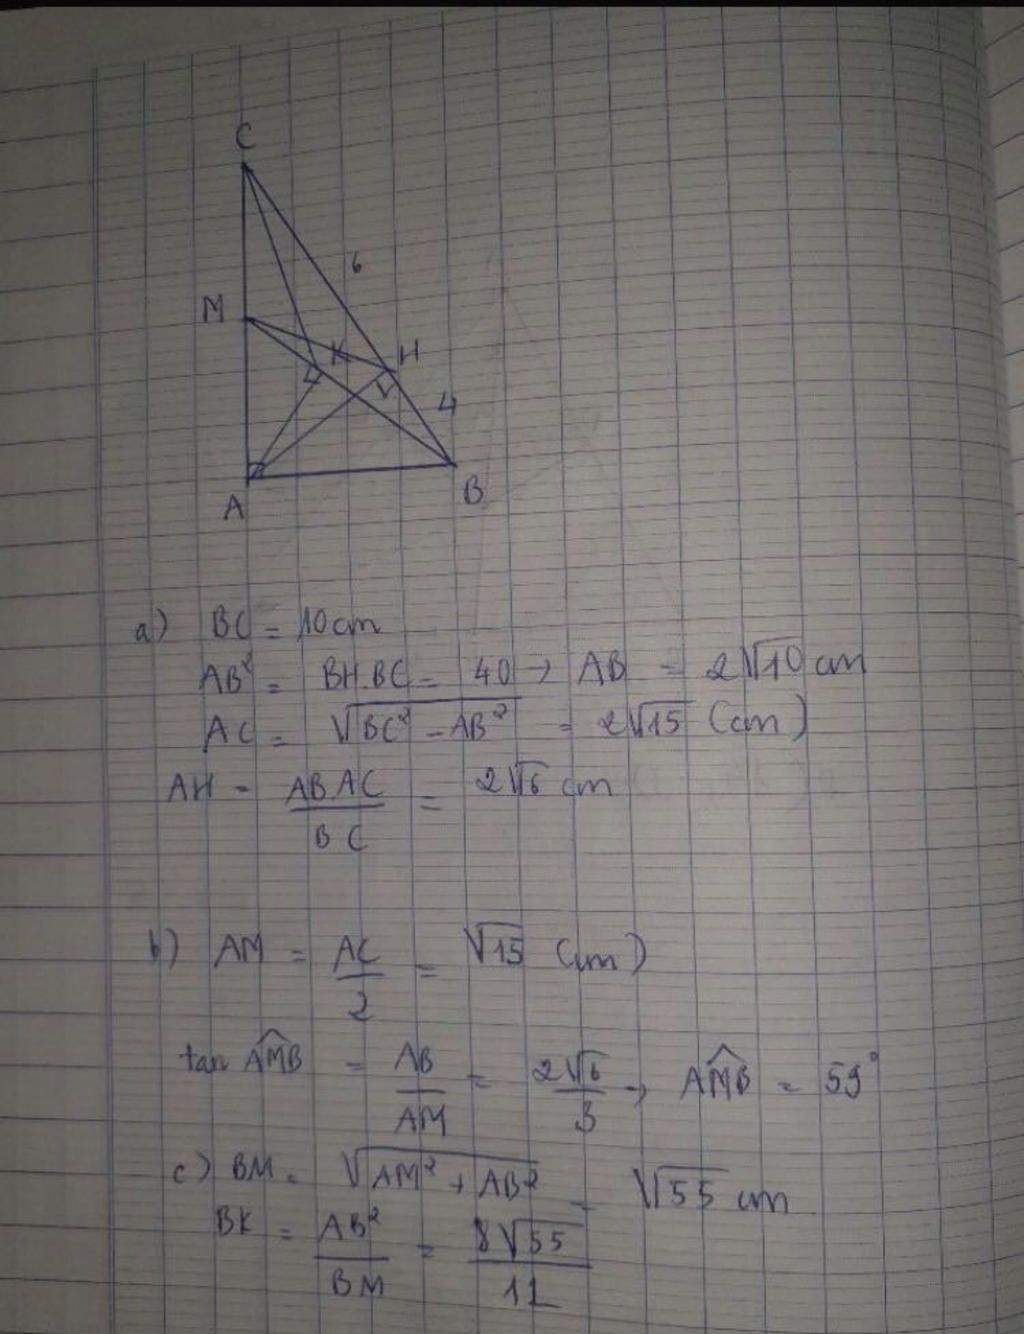 C
6
M
K
H
4
A
B
a) BC = 10cm
AB² = BH.BC = 40 → AB = 2√10 cm
AC = √(BC² - AB²) = 2√15 (cm)
AH = AB.AC / BC = 2√6 cm
b) AM = AC / 2 = √15 (cm)
tan AMB = AB / AM = 2√6 / 3 → AMB = 59°
c) BM = √(AM² + AB²) = √55 cm
BK = AB² / BM = 8√55 / 11